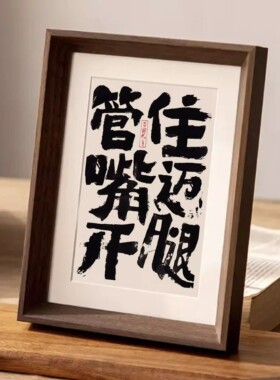 管住
嘴迈
开腿